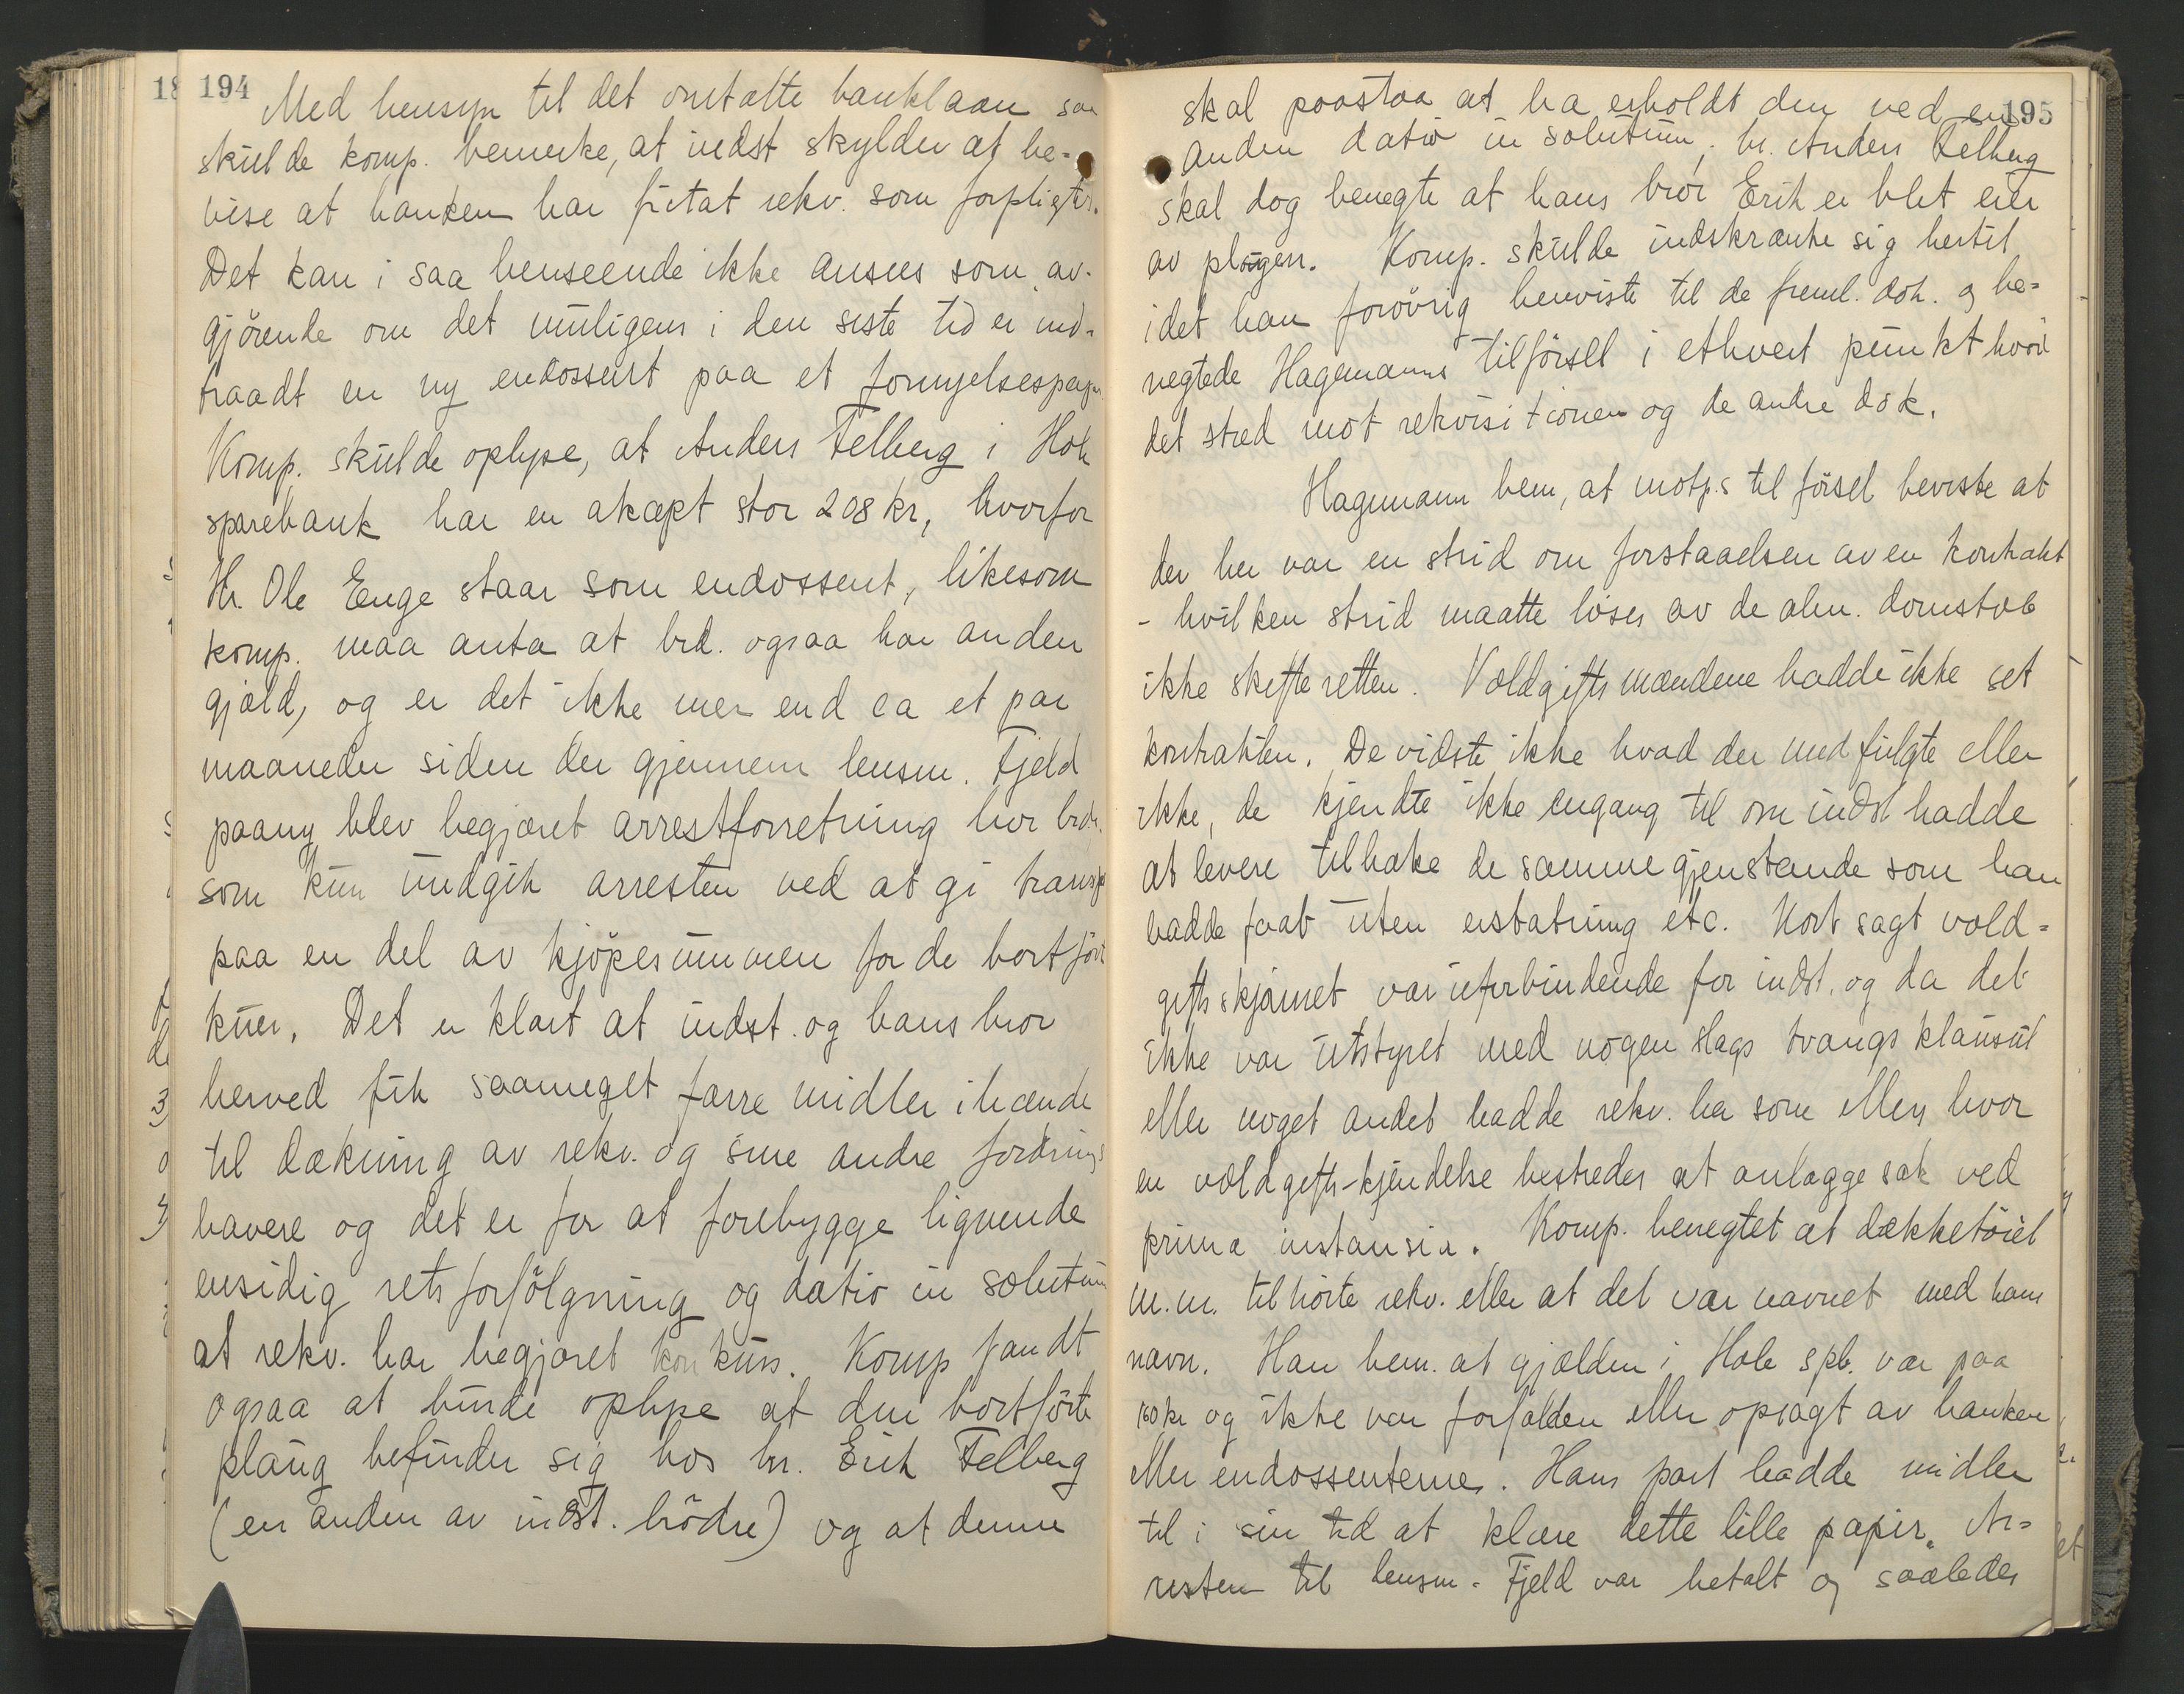 194
Med hensyn til det omtalte banklaan saa
skulde komp. bemerke, at indst skylder at be=
vise at banken har fritat rekv. som forpligtet.
Det kan i saa henseende ikke ansees som av-
gjörende om det muligens i den siste tid er ind-
traadt en ny endossent paa et fornyelsespapir
Komp. skulde oplyse, at Anders Felberg i Hole
sparebank har en akcept stor 208 kr, hvorfor
Hr. Ole Enge staar som endossent, likesom
komp. maa anta at ved. ogsaa har anden
gjæld, og er det ikke mer end ca et par
maaneder siden der gjennem lensm. Fjeld
paany blev begjæret arrestforretning hos
som kun undgik arresten ved at gi transp
paa en del av kjöpesummen for de bortförte
kuer. Det er klart at indst. og hans bror
herved fik saameget færre midler i hænde
til dækning av rekv. og sine andre fordrings
havere og det er for at forebygge lignende
ensidig rets forfölgning og datio in solutum
at rekv. har begjæret konkurs. Komp fandt
ogsaa at burde oplyse at den bortförte
plaug befinder sig hos hr. Erik Felberg
(en anden av indst. brödre) og at denne
195
skal paastaa at ha erholdt den ved en
anden datio in solutum, hr. Anders Felberg
skal dog benegte at hans bror Erik er blet eier
av plogen. Komp. skulde indskrænke sig hertil
idet han forövrig henviste til de freml. dok. og be=
negtede Hagemanns tilförsel i ethvert punkt hvori
det stred mot rekvisitionen og de andre dok.
Hagemann bem, at motp.s tilförsel beviste at
der her var en strid om forstaaelsen av en kontrakt
- hvilken strid maatte löses av de alm. domstole
ikke skifteretten. Voldgiftsmændene hadde ikke set
kontrakten. De vidste ikke hvad der medfulgte eller
ikke, de kjendte ikke engang til om indst hadde
at levere tilbake de samme gjenstande som han
hadde faat uten erstatning etc. Kort sagt vold=
giftsskjönnet var uforbindende for indst. og da det
ikke var utstyret med nogen slags tvangsklausul
eller noget andet hadde rekv. her som ellers hvor
en voldgifts-kjendelse bestredes at anlægge sak ved
prima instansia. Komp. benegtet at dækketöiet
m.m. tilhörte rekv. eller at det var navnet med hans
navn. Han bem. at gjælden i Hole spb. var paa
160 kr og ikke var forfalden eller opsagt av banken
eller endossenterne. Hans part hadde midler
til i sin tid at klare dette lille papir. Ar=
resten til lensm. Fjeld var betalt og saaledes